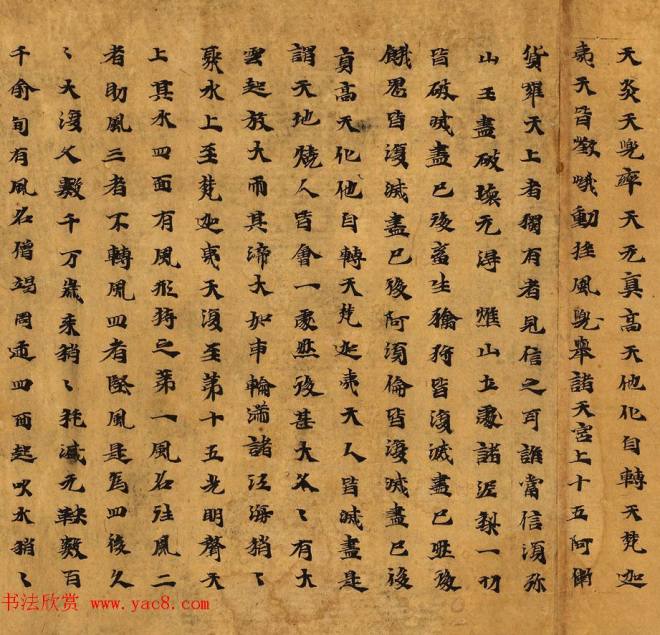 天炎天兜率天无貢高天他化自轉天梵迦
夷天皆𢿙峨動揺風兜舉諸天宮上十五阿衛
貨羅天上者獨有者見信之耳誰當信須弥
山王盡破壞无得 惟山立處諸泥犁一切
皆破滅盡已後畜生猶狩皆復滅盡已然後
餓鬼皆復滅盡已後阿須倫皆復滅盡已後
貢高天化他自轉天梵迦夷天人皆滅盡是
謂天地燒人皆會一處然後甚大久〻有大
雲起放大雨其渧大如車輪滿諸江海稍〻
聚水上至梵迦夷天復至第十五光明聲天
上其水四面有風形持之第一風名住風二
者助風三者不轉風四者堅風是爲四後久
〻大復久數千万歲來稍〻耗減无鞅數百
千俞旬有風名僧竭周遍四面起吹水稍〻
书法欣赏 www.yac8.com